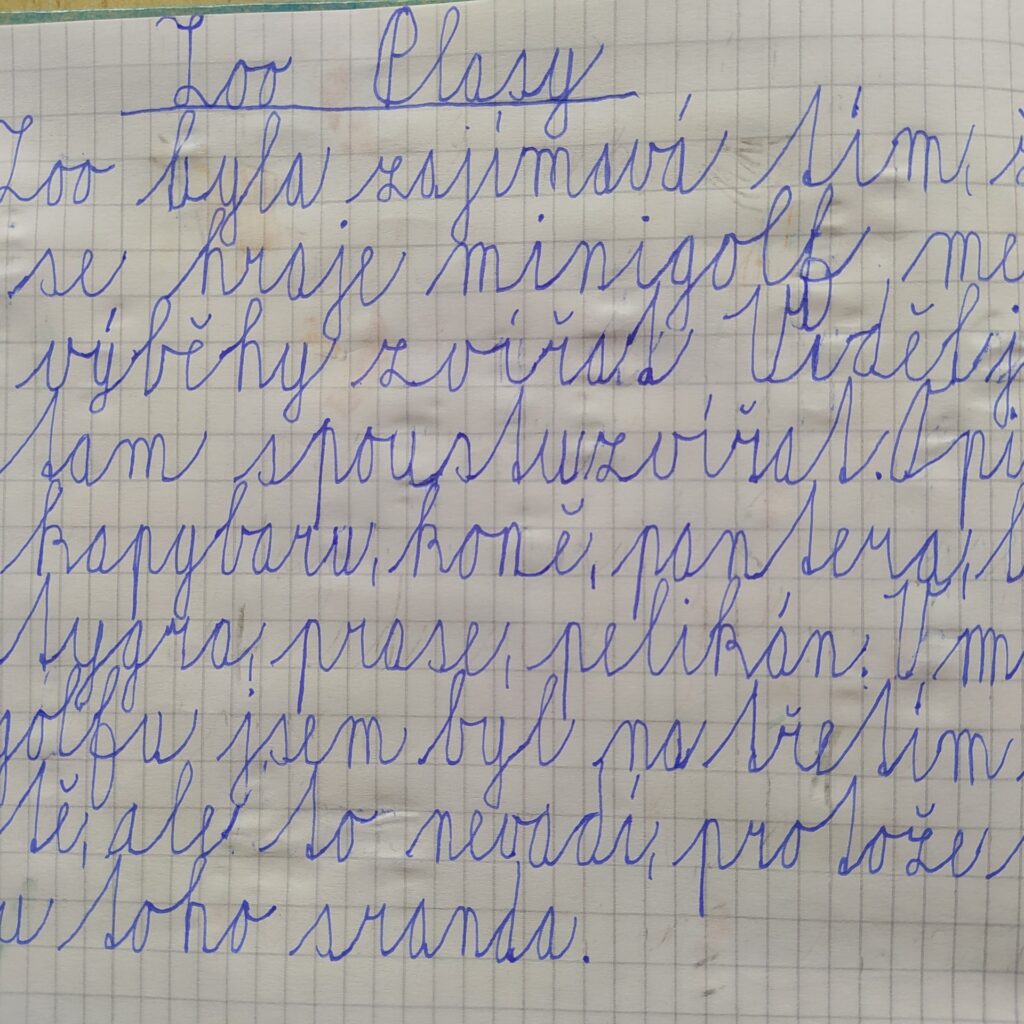 Zoo Plasy
Zoo byla zajímavá tím, ž
se hraje minigolf me
výběhy zvířat Viděli j
tam spoustu zvířat. Opi
kapybaru, koně, pantera, l
tygra, prase, pelikán. V m
golfu jsem byl na třetím
tě, ale to nevadí, protože
u toho sranda.